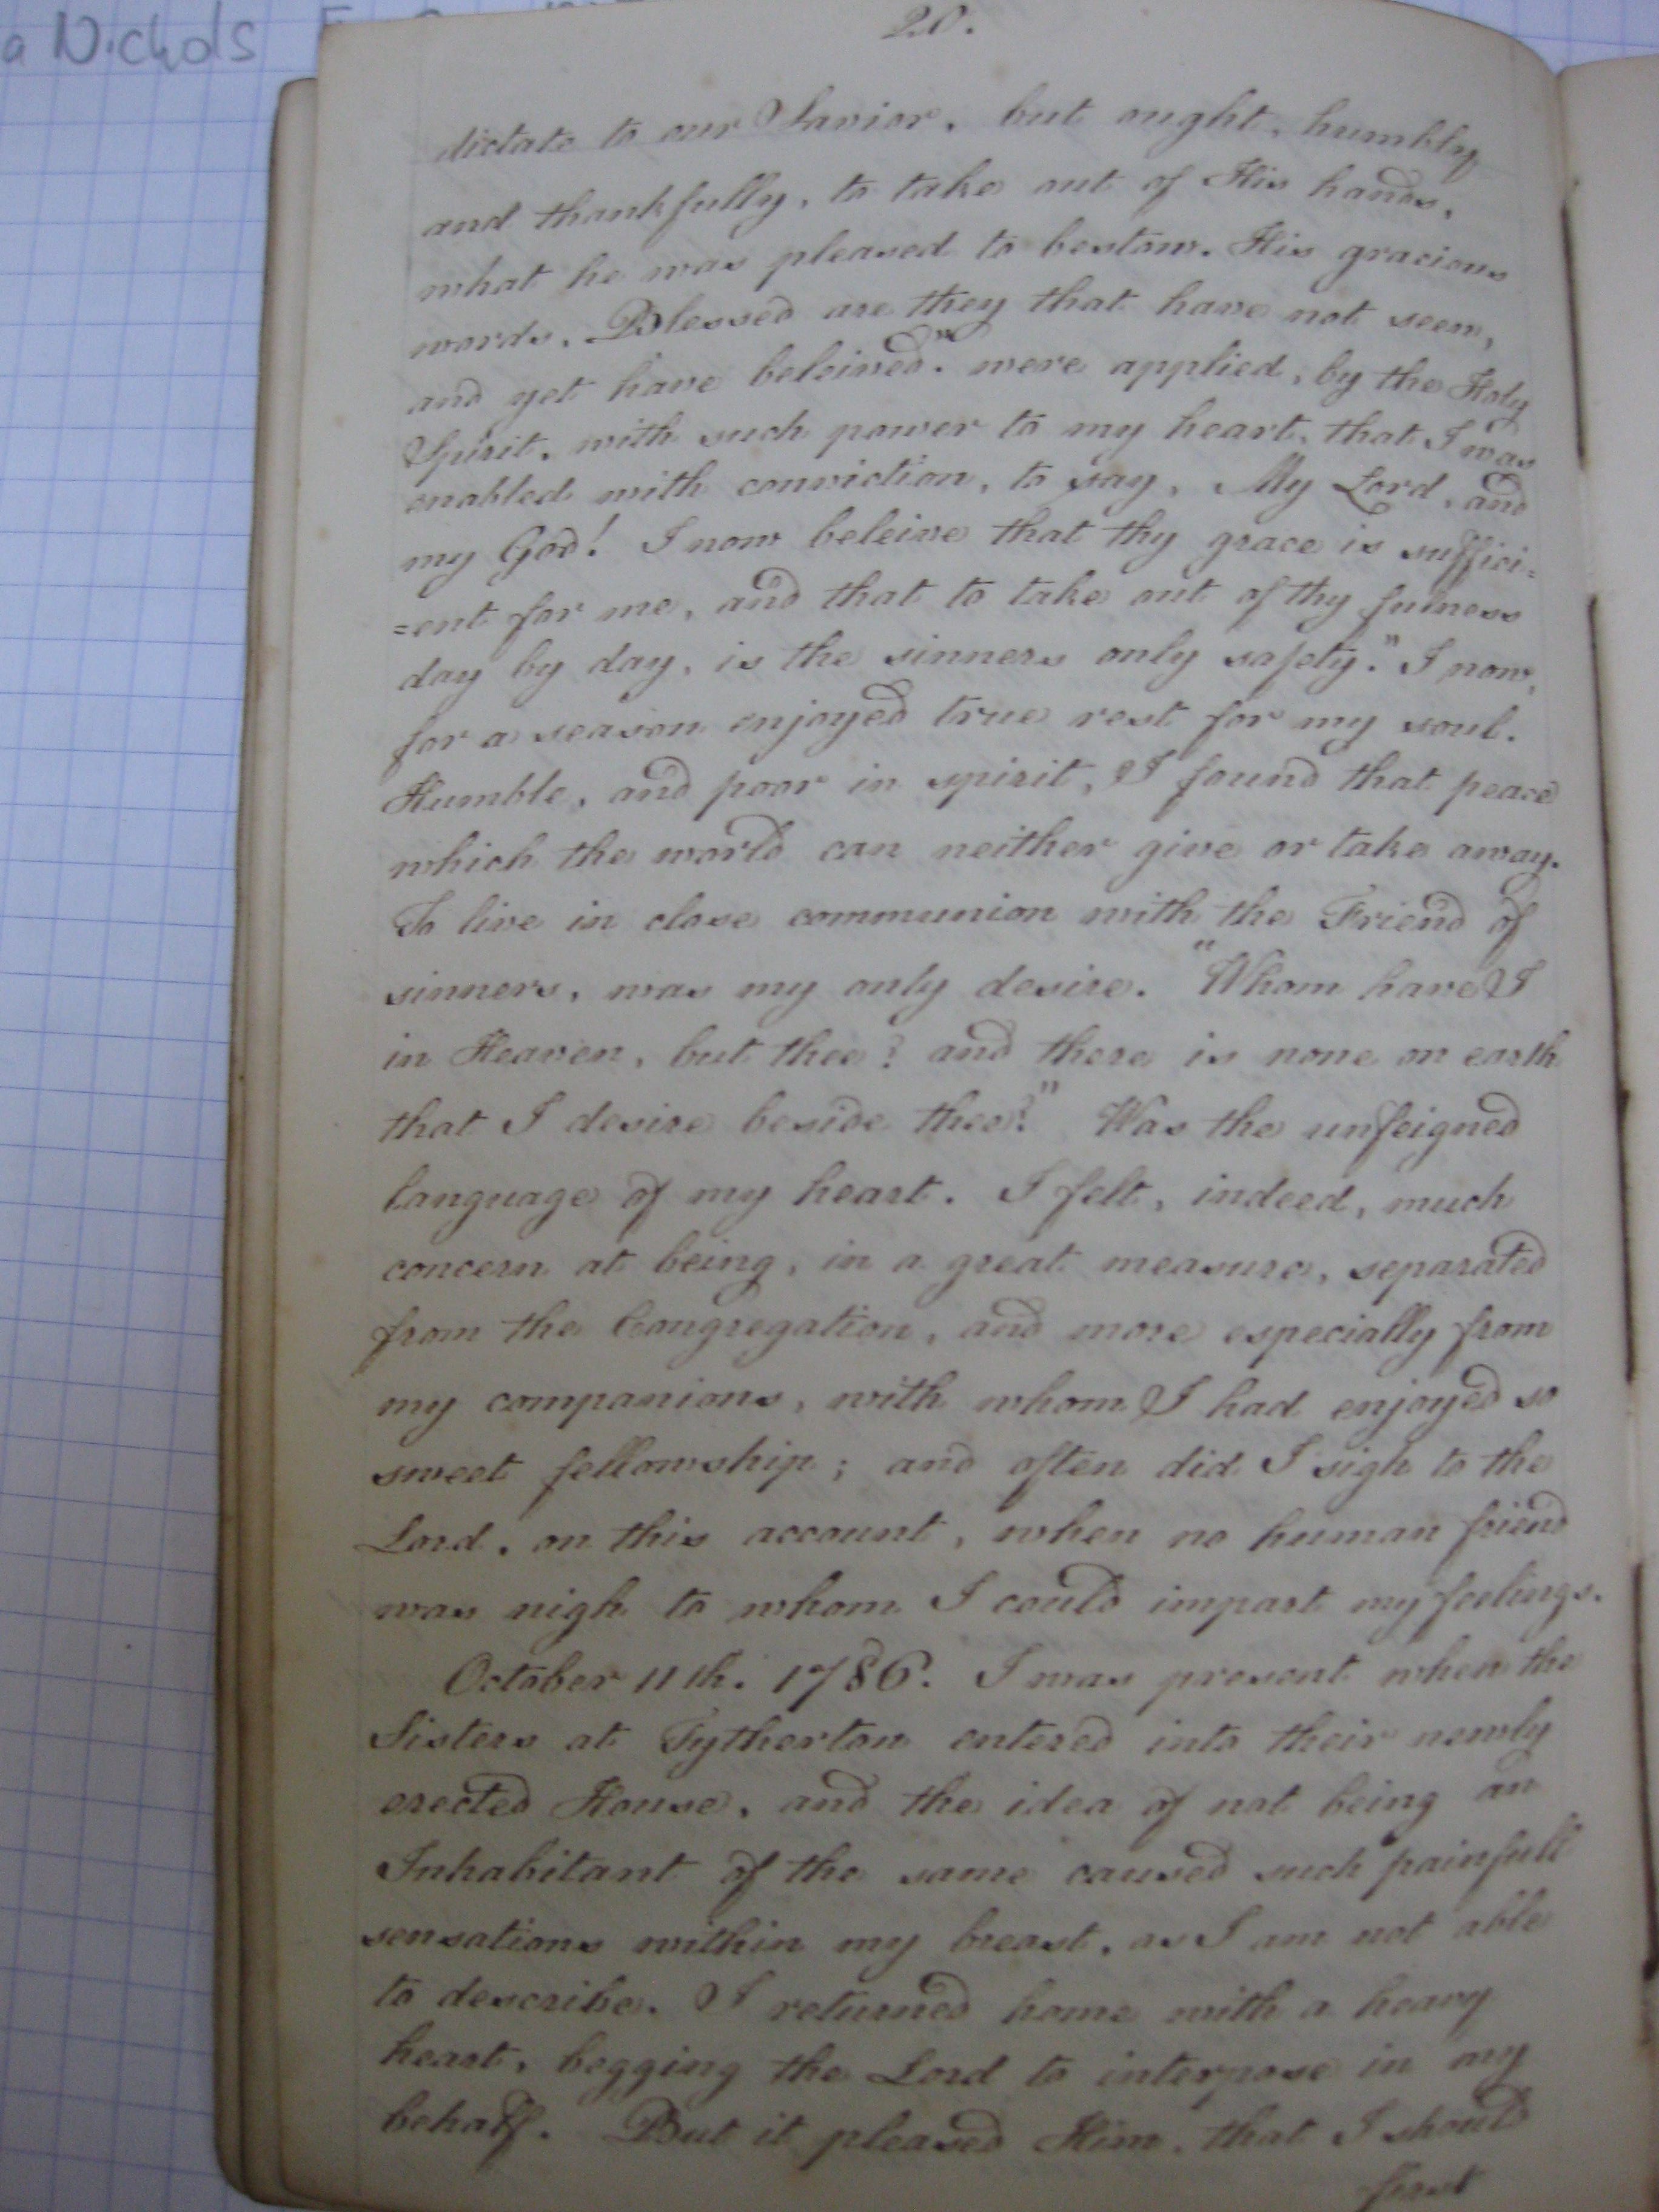 a Nichols
20.
dictate to our Savior, but ought, humbly
and thankfully, to take out of His hands,
what he was pleased to bestow. His gracious
words, Blessed are they that have not seen,
and yet have beleived." were applied, by the Holy
Spirit, with such power to my heart, that I was
enabled with conviction, to say, My Lord, and
my God! I now beleive that thy grace is suffici=
=ent for me, and that to take out of thy fulness
day by day, is the sinners only safety." I now,
for a season enjoyed true rest for my soul.
Humble, and poor in spirit, I found that peace
which the world can neither give or take away.
To live in close communion with the Friend of
sinners, was my only desire. "Whom have I
in Heaven, but thee? and there is none on earth
that I desire beside thee?" Was the unfeigned
language of my heart. I felt, indeed, much
concern at being, in a great measure, separated
from the Congregation, and more especially from
my companions, with whom I had enjoyed so
sweet fellowship; and often did I sigh to the
Lord, on this account, when no human friend
was nigh to whom I could impart my feelings.
October 11th. 1786. I was present when the
Sisters at Tytherton entered into their newly
erected House, and the idea of not being an
Inhabitant of the same caused such painfull
sensations within my breast, as I am not able
to describe. I returned home with a heavy
heart, begging the Lord to interpose in my
behalf. But it pleased Him, that I should
first